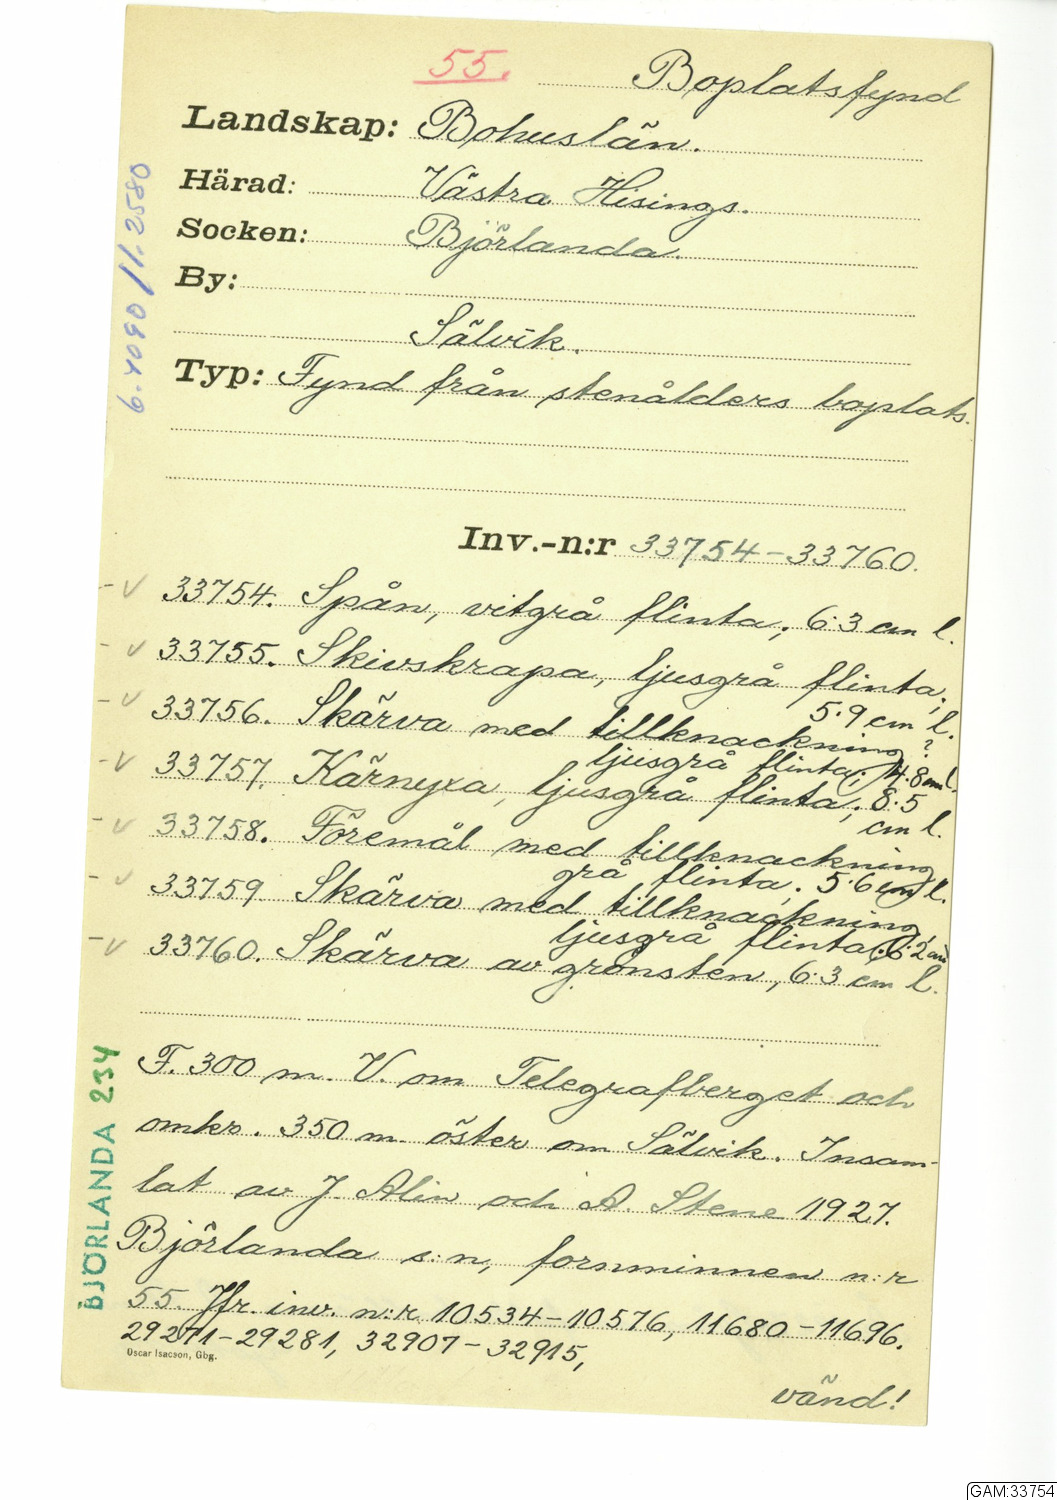 55.
Boplatsfynd
Landskap: Bohuslän.
Härad: Västra Hisings.
Socken: Björlanda.
By:
Sälvik.
Typ: Fynd från stenålders boplats.
Inv.-n:r 33754-33760.
33754. Spån, vitgrå flinta, 6.3 cm l.
33755. Skivskrapa, ljusgrå flinta,
5.9 cm l.
33756. Skärva med tillknackning?
ljusgrå flinta; 4.8 cm l.
33757. Kärnyxa, ljusgrå flinta; 8.5
cm l.
33758. Föremål med tillknackning
grå flinta. 5.6 cm l.
33759. Skärva med tillknackning,
ljusgrå flinta; 6.2 cm
33760. Skärva av grönsten, 6.3 cm l.
F. 300 m. V. om Telegrafberget och
omkr. 350 m. öster om Sälvik. Insam-
lat av J. Alin och A. Stene 1927.
Björlanda s:n, fornminnen n:r
55. Jfr. inv. n:r 10534-10576, 11680-11696.
29271-29281, 32907-32915,
Oscar Isacson, Gbg.
vänd!
6.4090/1.2580
BJÖRLANDA 234
GAM:33754